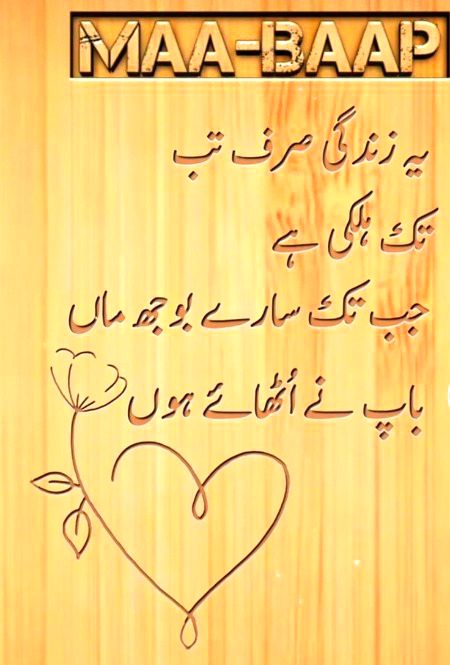 MAA-BAAP
یہ زندگی صرف تب
تک ہلکی ہے
جب تک سارے بوجھ ماں
باپ نے اُٹھائے ہوں